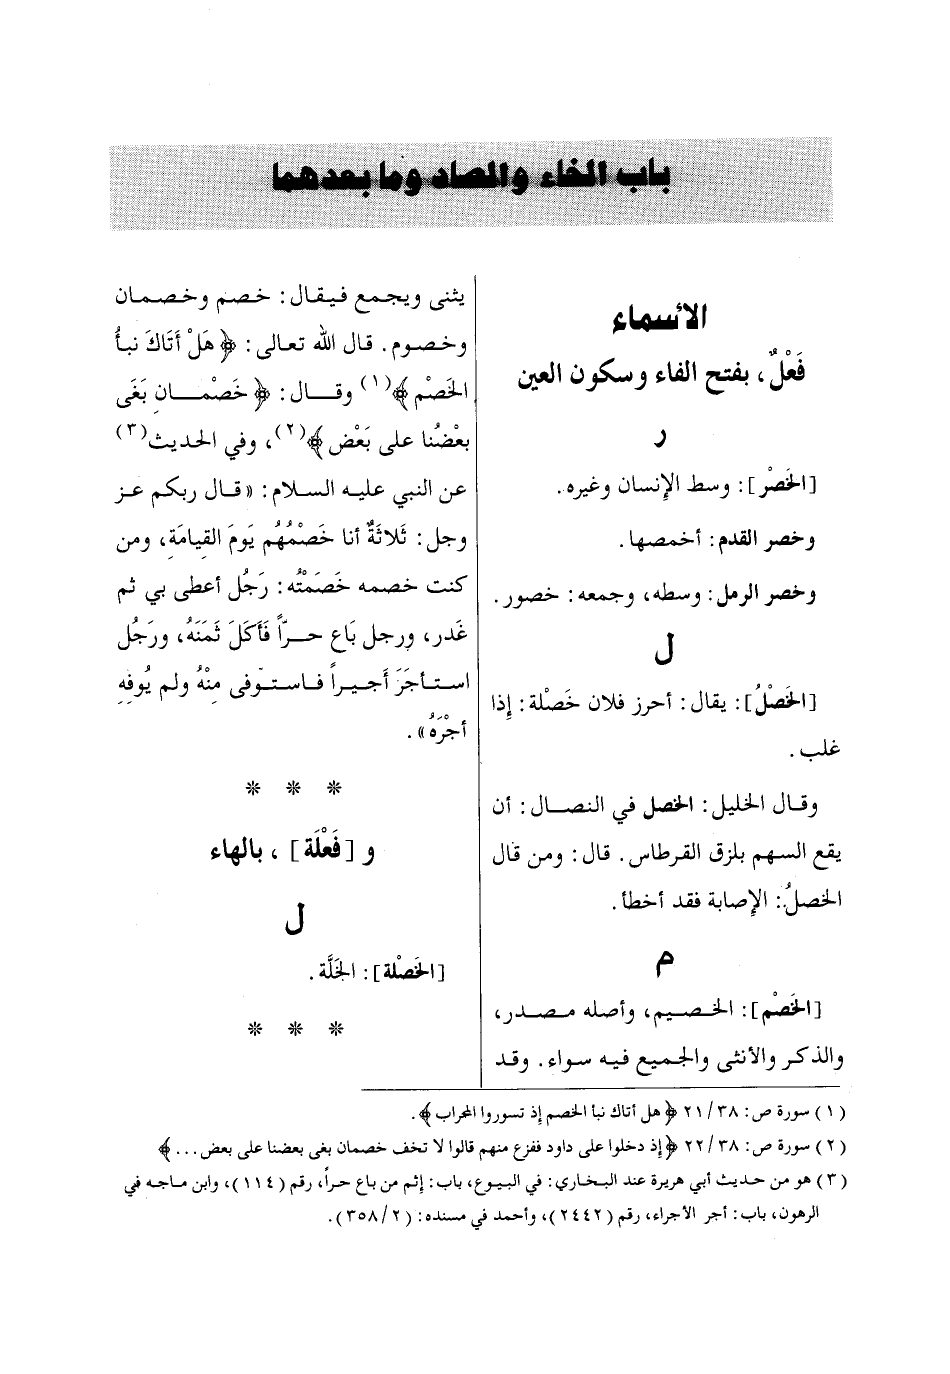 باب الخاء والصاد وما بعدهما
الأسماء
فَعْلٌ، بفتح الفاء وسكون العين
ر
[الخَصْر]: وسط الإنسان وغيره.
وخصر القدم: أخمصها.
وخصر الرمل: وسطه، وجمعه: خصور.
ل
[الخَصْلُ]: يقال: أحرز فلان خَصْلة: إذا
غلب.
وقال الخليل: الخصل في النصال: أن
يقع السهم بلزق القرطاس. قال: ومن قال
الخصلُ: الإصابة فقد أخطأ.
م
[الخَصْم]: الخصيم، وأصله مصدر،
والذكر والأنثى والجميع فيه سواء. وقد
يثنى ويجمع فيقال: خصم وخصمان
وخصوم. قال الله تعالى: ﴿هَلْ أَتَاكَ نبأُ
الخَصْمِ﴾(١) وقال: ﴿خَصْمانِ بَغَى
بعْضُنا على بَعْض﴾(٢)، وفي الحديث(٣)
عن النبي عليه السلام: «قال ربكم عز
وجل: ثَلاثَةٌ أنا خَصْمُهُم يَومَ القيامَةِ، ومن
كنت خصمه خَصَمْتُه: رَجُل أعطى بي ثم
غَدر، ورجل بَاع حراً فَأكَلَ ثَمَنَهُ، ورَجُل
استأجَرَ أَجيراً فاستوّفى مِنْهُ ولم يُوفِهِ
أجْرَهُ».
* * *
و [فَعْلَة]، بالهاء
ل
[الخَصْلة]: الخَلَّة.
* * *
(١) سورة ص: ٣٨/ ٢١ ﴿هل أتاك نبأ الخصم إذ تسوروا المحراب﴾.
(٢) سورة ص: ٣٨/ ٢٢ ﴿إذ دخلوا على داود ففزع منهم قالوا لا تخف خصمان بغى بعضنا على بعض...﴾
(٣) هو من حديث أبي هريرة عند البخاري: في البيوع، باب: إثم من باع حراً، رقم (١١٤)، وابن ماجه في
الرهون، باب: أجر الأجراء، رقم (٢٤٤٢)، وأحمد في مسنده: (٢/ ٣٥٨).